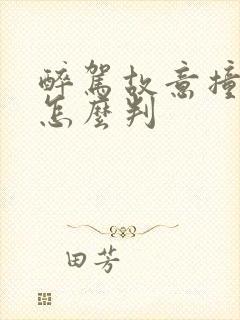 醉駕故意撞
怎麼判
田芳